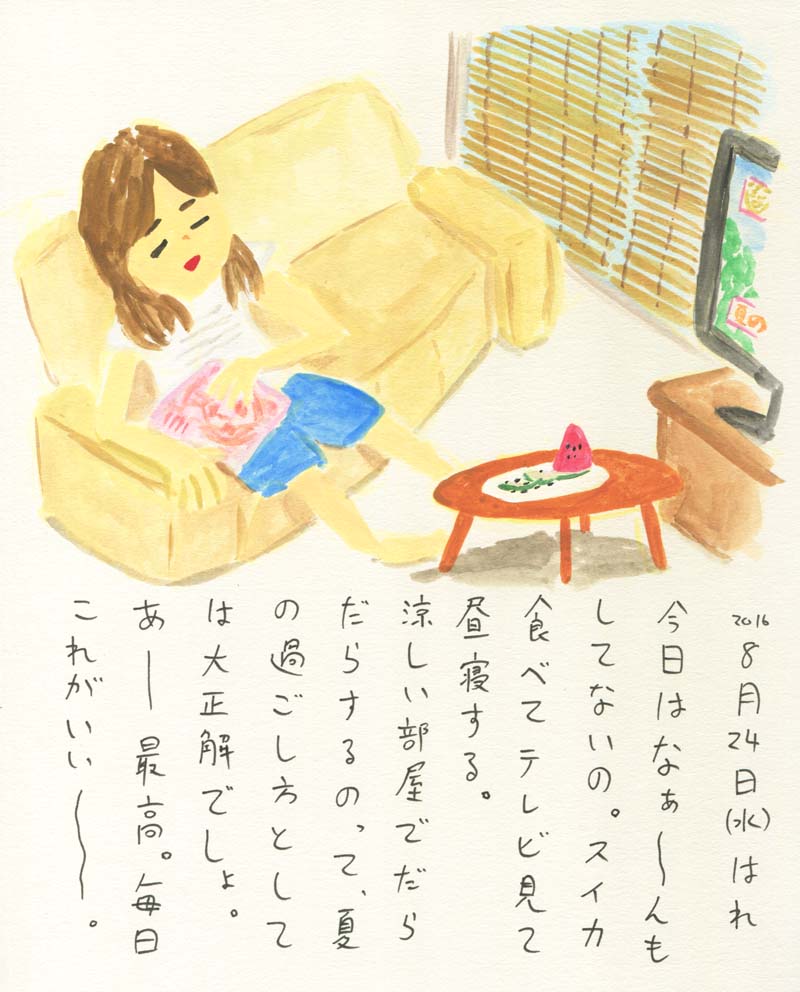 2016 8月24日(水)はれ
今日はなぁ〜んも
してないの。スイカ
食べてテレビ見て
昼寝する。
涼しい部屋でだら
だらするのって、夏
の過ごし方として
は大正解でしょ。
あー 最高。毎日
これがいい〜〜。
夏の